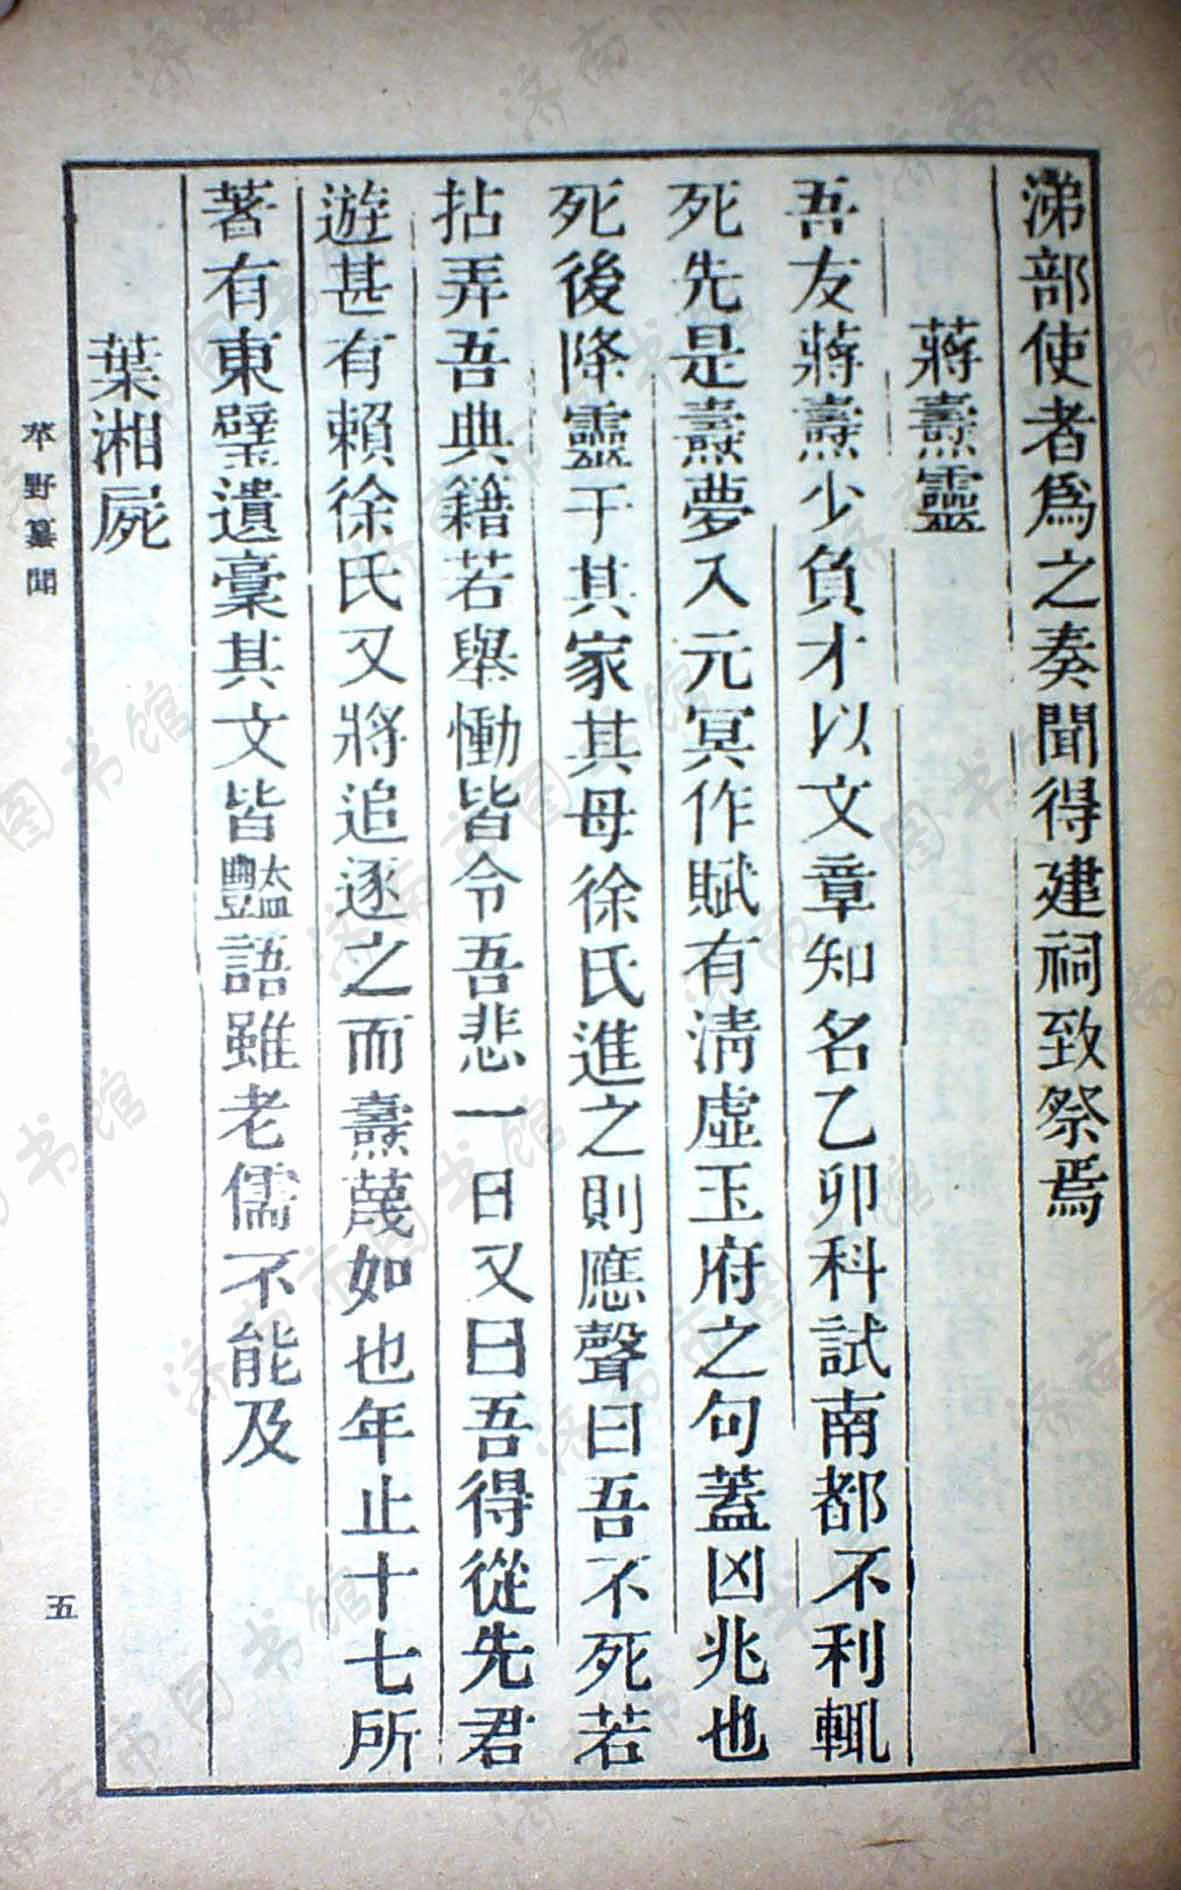 涕部使者爲之奏聞得建祠致祭焉
蔣燾靈
吾友蔣燾少負才以文章知名乙卯科試南都不利輒
死先是燾夢入元冥作賦有清虛玉府之句蓋凶兆也
死後降靈于其家其母徐氏進之則應聲曰吾不死若
拈弄吾典籍若舉慟皆令吾悲一日又曰吾得從先君
遊甚有賴徐氏又將追逐之而燾蔑如也年止十七所
著有東壁遺稾其文皆豔語雖老儒不能及
葉湘屍
苹野纂聞
五
济南市图书馆